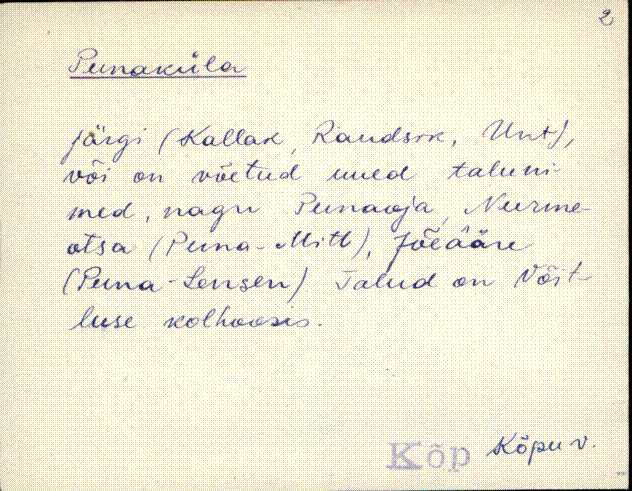 2
Punaküla
järgi (Kallak, Raudsik, Unt),
või on võetud uued taluni-
med, nagu Punaoja, Nurme-
otsa (Puna-Mitt), Jõeääre
(Puna-Sensen) Talud on Võit-
luse kolhoosis.
Kõp Kõpu v.